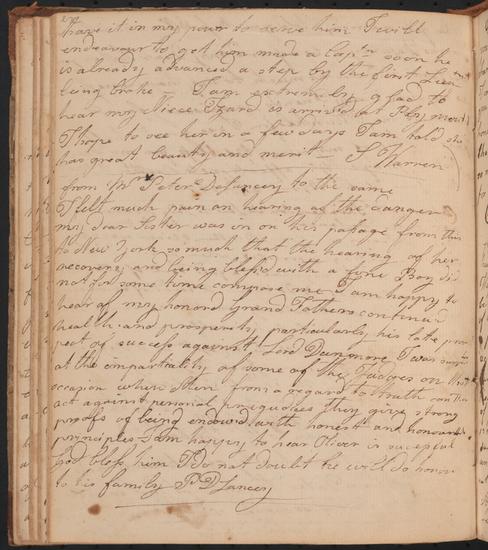 have it in my powr to serve him I will
endeavour to get him made a Capn soon he
is already advanced a step by the first Lieunt
being broke — I am extremly glad to
hear my Niece Izard is arriv'd at Plymouth
I hope to see her in a few days I am told she
has great beauty and merit — S Warren
from Mr Peter Delancey to the same
I felt much pain on hearing of the danger
my dear Sister was in on her passage from this
to New York so much that the hearing of her
recovery and being bless'd with a fine Boy did
not for some time compose me I am happy to
hear of my honord Grand Fathers continued
health and prosperity particularly his late pros
pect of success against Lord Dunmore I was
at the impartiality of some of the Judges on this
occasion when Men from a regard to truth can thus
act against personal prejudices they give strong
proofs of being endow'd with honest and honourable
principles I am happy to hear Oliver is successful
God bless him I do not doubt he will do honor
to his family P DLancey